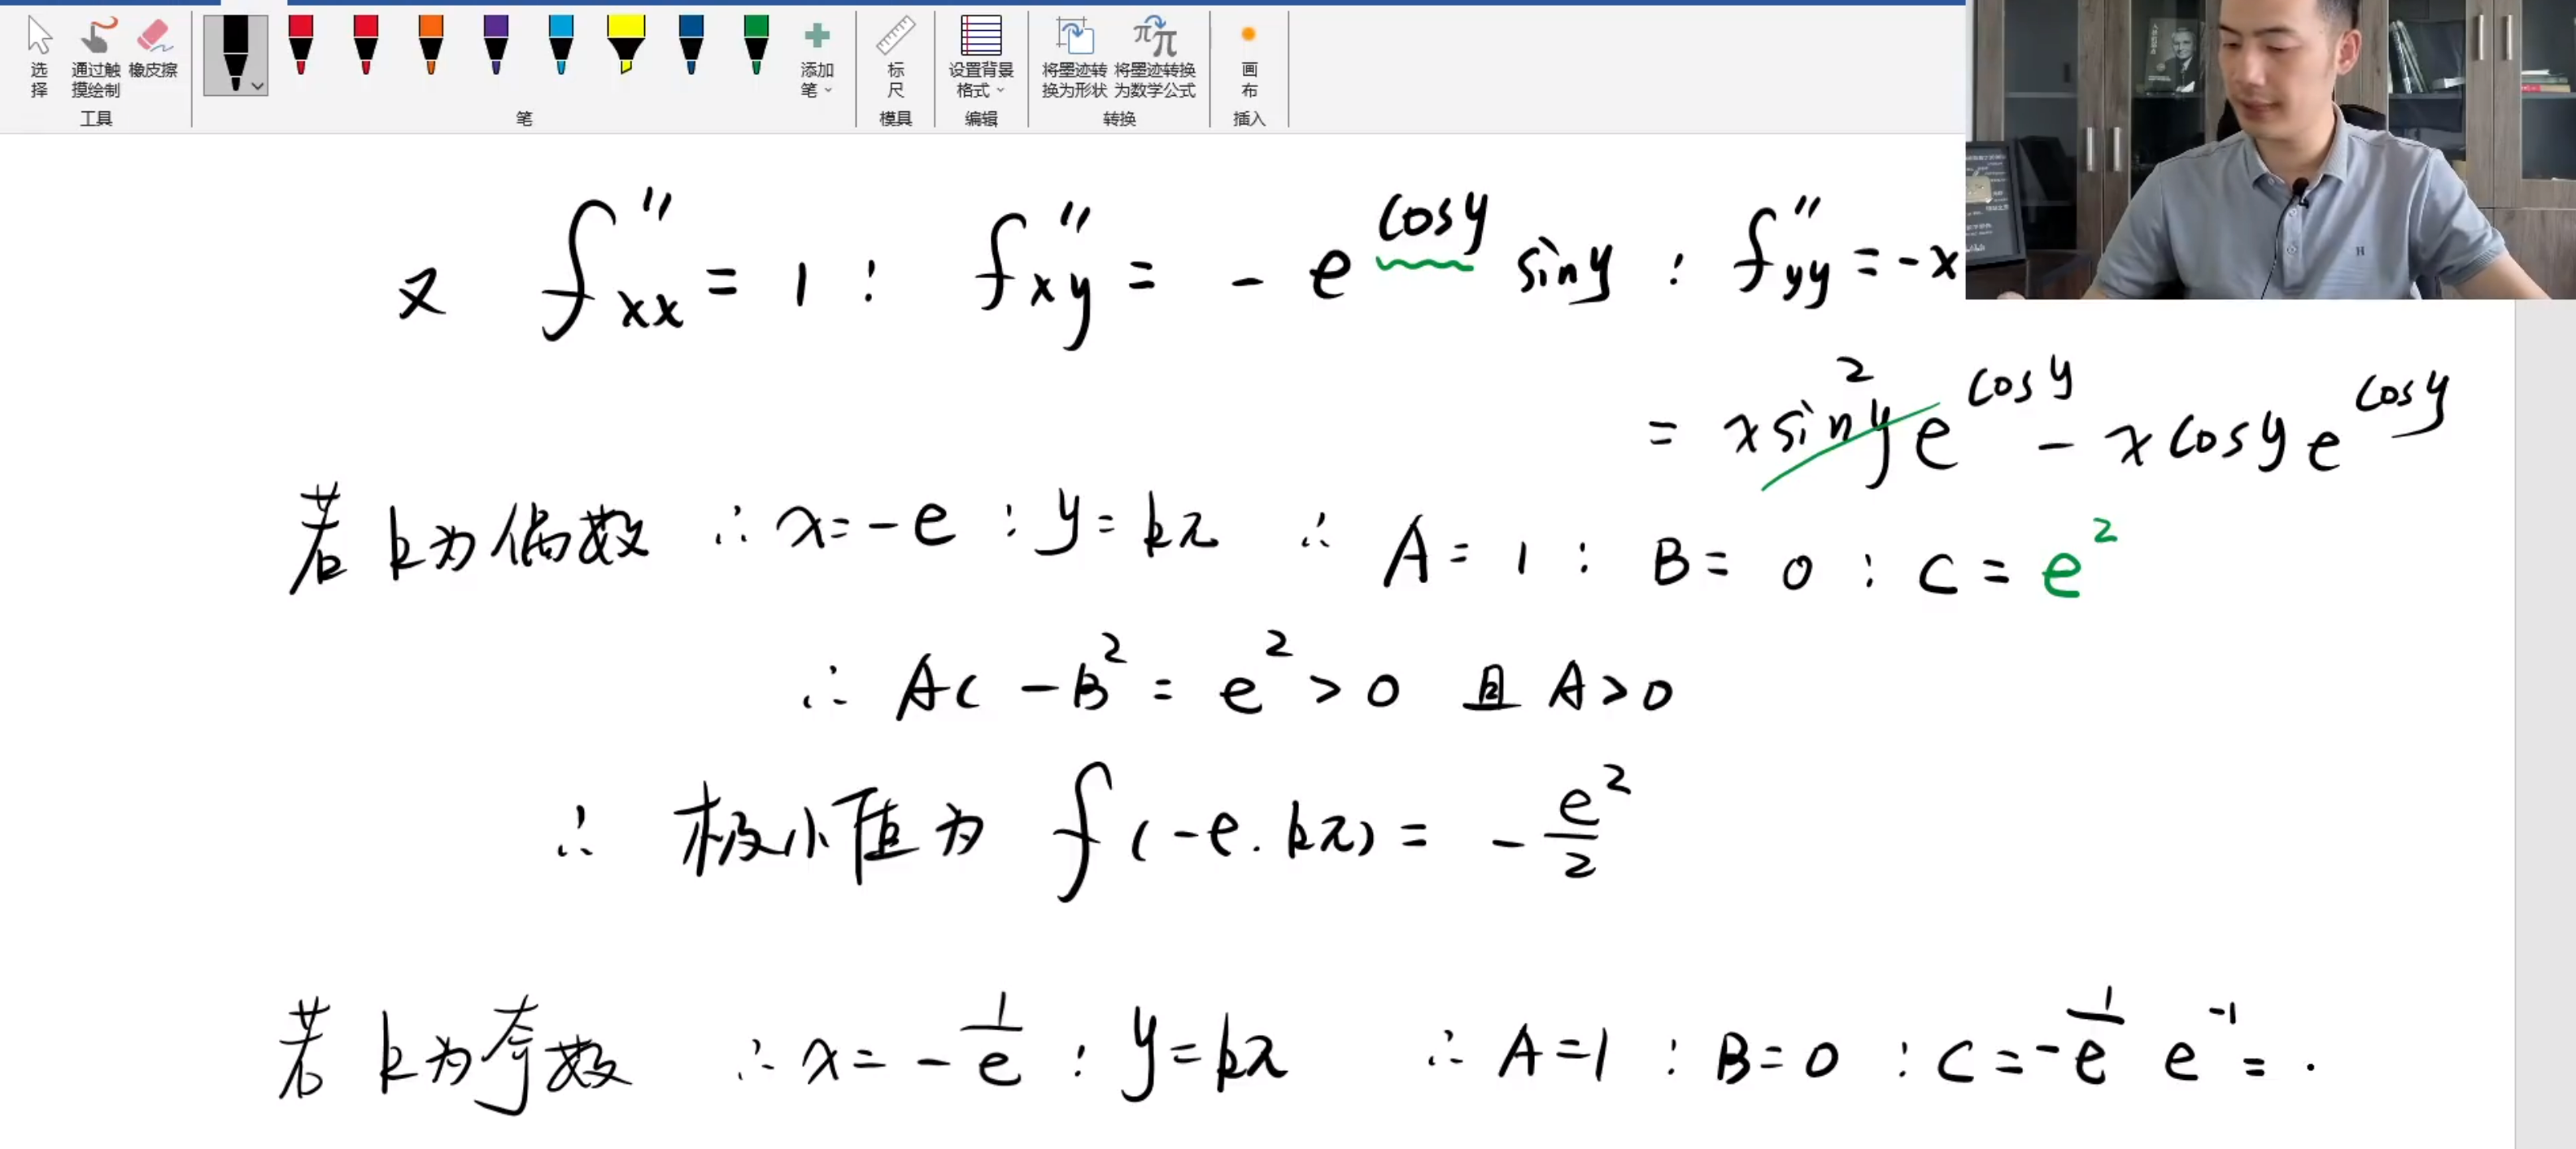 选择 通过触摸绘制 橡皮擦 添加笔 标尺 设置背景格式 将墨迹转换为形状 将墨迹转换为数学公式 画布
工具 笔 模具 编辑 转换 插入
又 f''xx = 1 : f''xy = - e^cosy siny : f''yy = -x
= x sin²y e^cosy - x cosy e^cosy
若 k为偶数 ∴ x = -e : y = kπ ∴ A = 1 : B = 0 : C = e²
∴ AC - B² = e² > 0 且 A > 0
∴ 极小值为 f(-e. kπ) = - e²/2
若 k为奇数 ∴ x = - 1/e : y = kπ ∴ A = 1 : B = 0 : C = - 1/e e^-1 = .